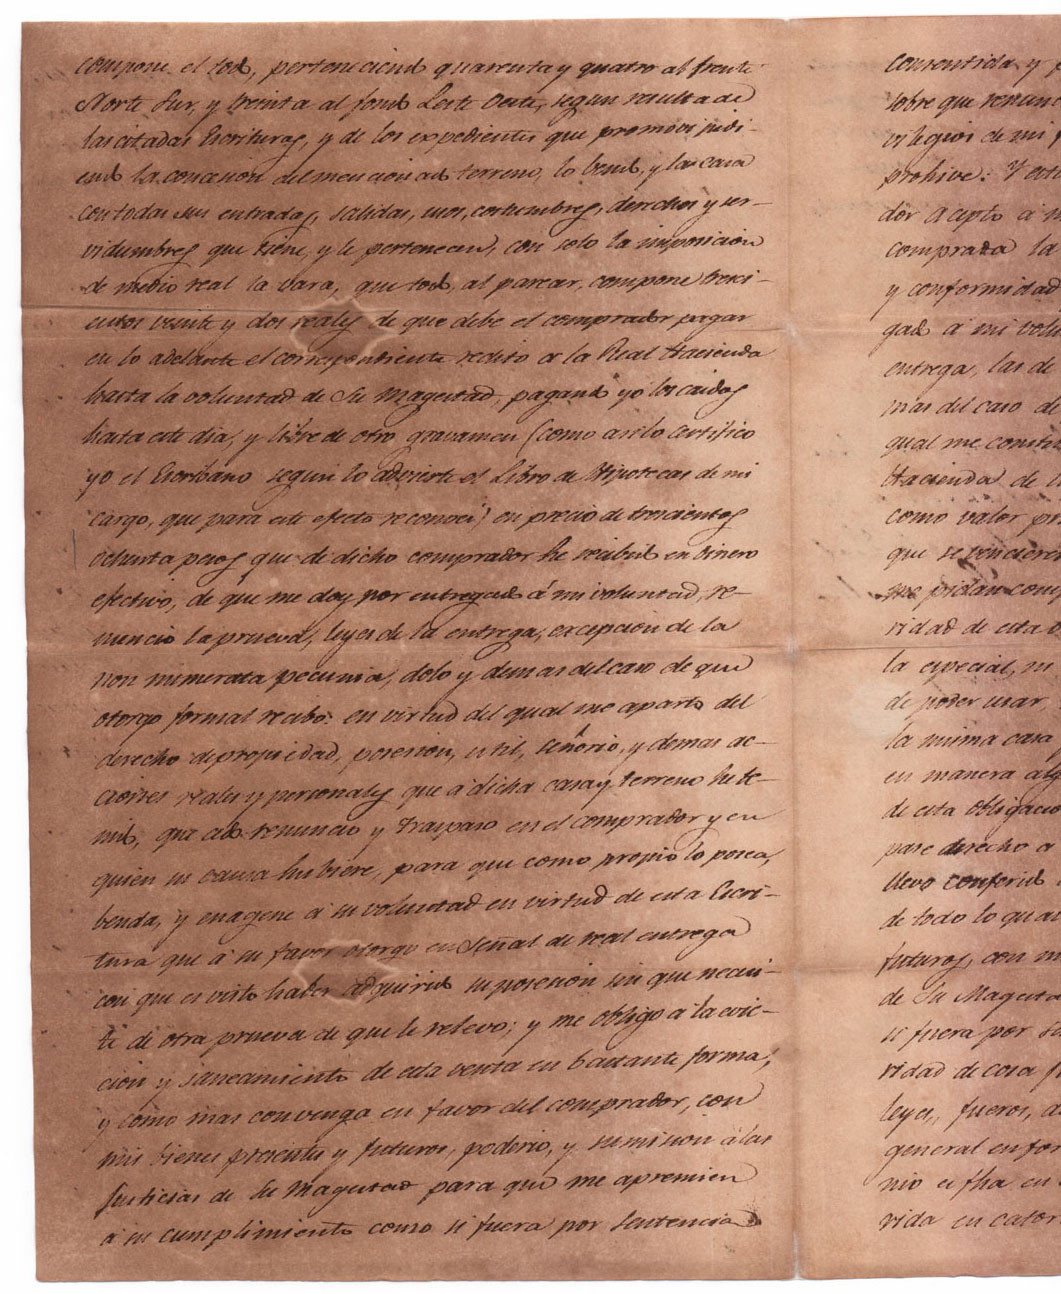 compone el todo, perteneciendo quarenta y quatro al frente
Norte Sur, y treinta al fondo Leste Oeste, segun resulta de
las citadas Escrituras, y de los expedientes que promovi pidi-
endo la concesion del mencionado terreno, lo vendo, y las casa
con todas sus entradas, salidas, usos, costumbres, derechos y ser-
vidumbres que tiene, y le pertenecen, con solo la imposicion
de medio real la vara, que todo, al parecer, compone tresci-
entos veinte y dos reales de que debe el comprador pagar
en lo adelante el correspondiente redito a la Real Hacienda
hasta la voluntad de Su Magestad, pagando yo los caidos
hasta este dia, y libre de otro gravamen (como asi lo certifico
yo el Escribano segun lo advierte el Libro de Hipotecas de mi
cargo, que para este efecto reconoci) en precio de trescientos
ochenta pesos que de dicho comprador he recibido en dinero
efectivo, de que me doy por entregado á mi voluntad, re-
nuncio la prueva, leyes de la entrega, excepcion de la
non numerata pecunia, dolo y demas del caso de que
otorgo formal recibo: en virtud del qual me aparto del
derecho de propiedad, posesion, util, señorio, y demas ac-
ciones reales y personales que á dicha casa y terreno he te-
nido, que cedo renuncio y traspaso en el comprador y en
quien su causa hubiere, para que como propio lo posea,
benda, y enagene á su voluntad en virtud de esta Escri-
tura que á su favor otorgo en señal de real entrega
con que es visto haber adquirido su posesion sin que necesi-
te de otra prueva de que le relevo; y me obligo á la evic-
cion y saneamiento de esta venta en bastante forma,
y como mas convenga en favor del comprador, con
mis bienes presentes y futuros, poderio, y sumision á las
Justicias de Su Magestad para que me apremien
á su cumplimiento como si fuera por sentencia
consentida y
sobre que renun
vilegios de mi
prohive: Y est
dor acepto á
comprada la
y conformidad
gado á mi volu
entrega, las de
mas del caso de
qual me constit
Hacienda de
como valor pr
que se vencieren
me pidan comp
ridad de esta
la especial, ni
de poder usar,
la misma casa
en manera alg
de esta obligacio
pase derecho a
llevo conferido
de todo lo qual
futuros, con
de Su Magesta
si fuera por se
ridad de cosa
leyes, fueros,
general en for
nio es fha en
vida en cator